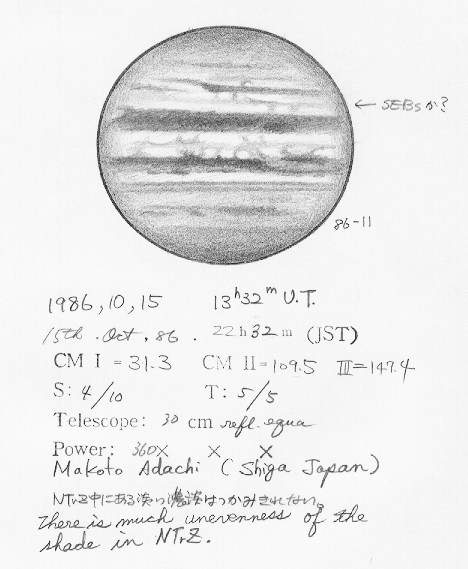 ← SEBsか?
86-11
1986, 10, 15 13h32m U.T.
15th. Oct, 86. 22h32m (JST)
CM I = 31.3 CM II=109.5 III=147.4
S: 4/10 T: 5/5
Telescope: 30 cm refl. equa
Power: 360× × ×
Makoto Adachi (Shiga Japan)
NTrZ中にある淡い濃淡はつかみきれない。
There is much unevenness of the
shade in NTrZ.